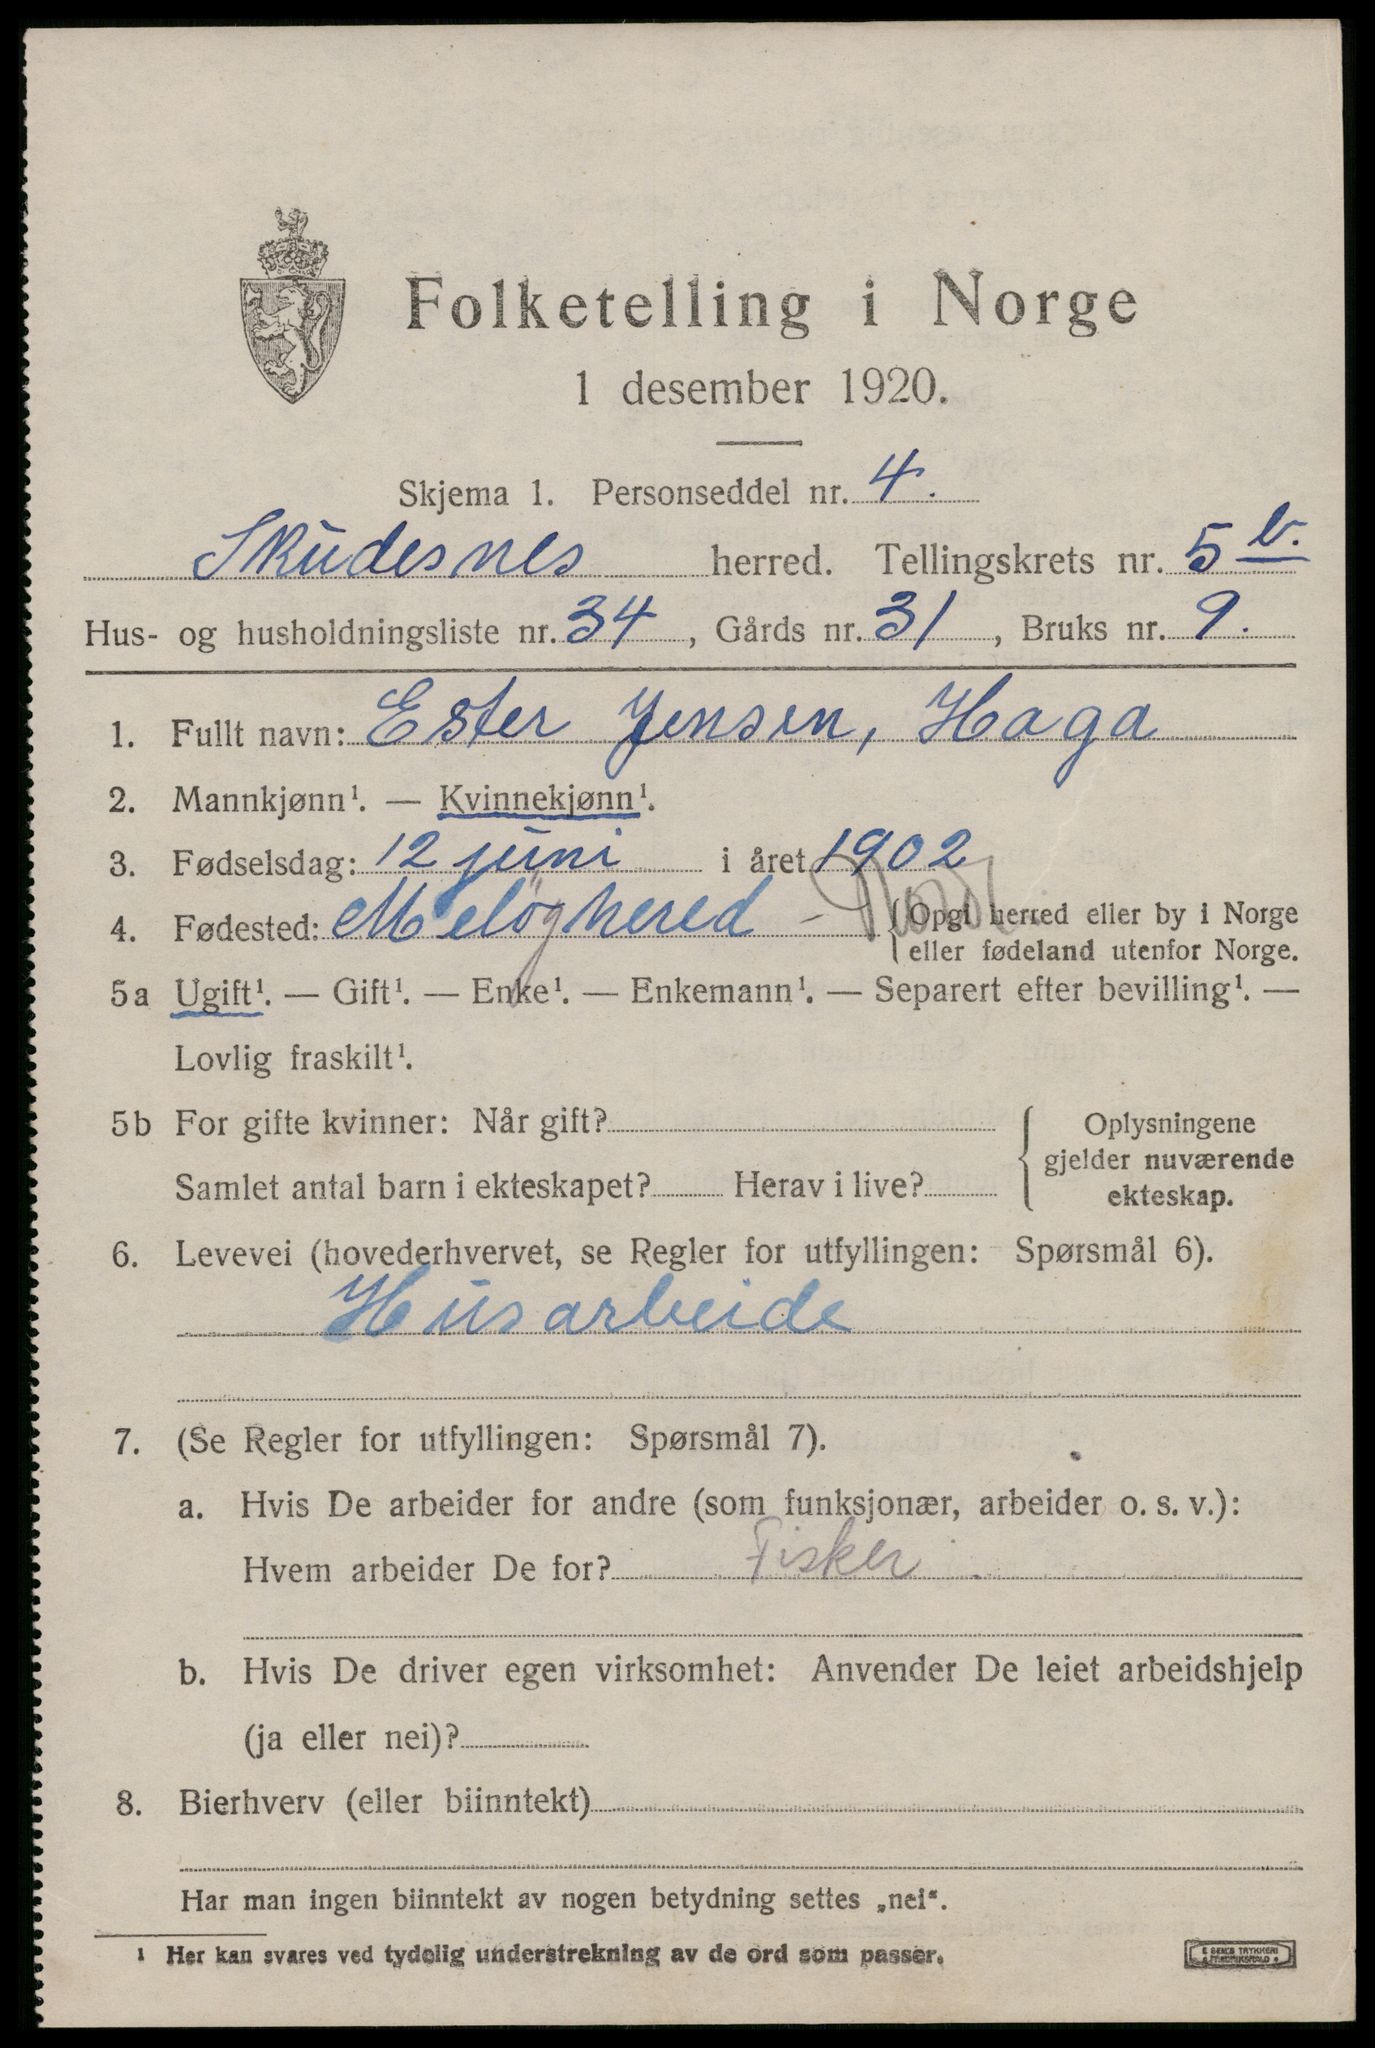 Folketelling i Norge
1 desember 1920.
Skjema 1. Personseddel nr. 4.
Skudesnes herred. Tellingskrets nr. 5 b.
Hus- og husholdningsliste nr. 34, Gårds nr. 31, Bruks nr. 9.
1. Fullt navn: Ester Jensen, Haga
2. Mannkjønn¹. — Kvinnekjønn¹.
3. Fødselsdag: 12 juni i året 1902
4. Fødested: Meløy hered - {Opgi herred eller by i Norge
eller fødeland utenfor Norge.
5a Ugift¹. — Gift¹. — Enke¹. — Enkemann¹. — Separert efter bevilling¹. —
Lovlig fraskilt¹.
5b For gifte kvinner: Når gift? { Oplysningene
gjelder nuværende
Samlet antal barn i ekteskapet? Herav i live? ekteskap.
6. Levevei (hovederhvervet, se Regler for utfyllingen: Spørsmål 6).
Husarbeide
7. (Se Regler for utfyllingen: Spørsmål 7).
a. Hvis De arbeider for andre (som funksjonær, arbeider o. s. v.):
Hvem arbeider De for? Fisker
b. Hvis De driver egen virksomhet: Anvender De leiet arbeidshjelp
(ja eller nei)?
8. Bierhverv (eller biinntekt)
Har man ingen biinntekt av nogen betydning settes „nei“.
¹ Her kan svares ved tydelig understrekning av de ord som passer.